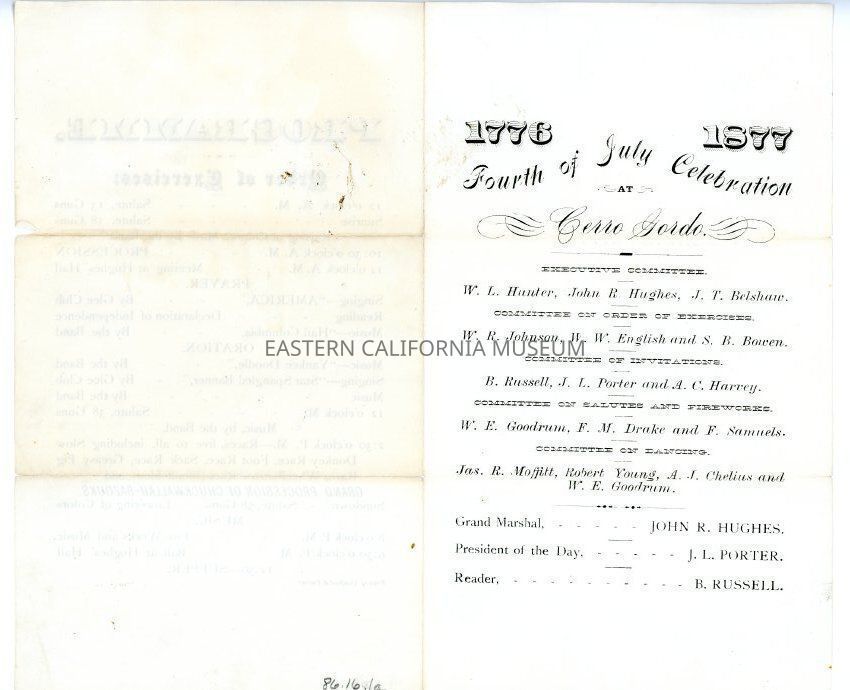 1776 1877
Fourth of July Celebration
AT
Cerro Gordo.
EXECUTIVE COMMITTEE.
W. L. Hunter, John R. Hughes, J. T. Belshaw.
COMMITTEE ON ORDER OF EXERCISES.
W. R. Johnson, W. W. English and S. B. Bowen.
EASTERN CALIFORNIA MUSEUM
COMMITTEE OF INVITATIONS.
B. Russell, J. L. Porter and A. C. Harvey.
COMMITTEE ON SALUTES AND FIREWORKS.
W. E. Goodrum, F. M. Drake and F. Samuels.
COMMITTEE ON DANCING.
Jas. R. Moffitt, Robert Young, A. J. Chelius and
W. E. Goodrum.
Grand Marshal, - - - - - JOHN R. HUGHES.
President of the Day, - - - - - J. L. PORTER.
Reader, - - - - - - - - - - B. RUSSELL.
PROGRAMME.
Order of Exercises:
Salute, 13 Guns
Sunrise Salute, 38 Guns
10:30 o'clock A. M. PROCESSION
11 o'clock A. M. Meeting at Hughes' Hall
PRAYER.
Singing—"AMERICA," By Glee Club
Reading Declaration of Independence
Music—"Hail Columbia," By the Band
ORATION.
Music—"Yankee Doodle," By the Band
Singing—"Star Spangled Banner," By Glee Club
Music By the Band
12 o'clock M. Salute, 38 Guns
Music by the Band.
2:30 o'clock P. M.—Races, free to all, including Slow
Donkey Race, Foot Race, Sack Race, Greasy Pig
GRAND PROCESSION OF
Sundown Salute, 38 Guns Lowering of Colors
MUSIC.
8 o'clock P. M. Fire Works and Music.
Ball at Hughes' Hall
SUPPER.
86.16.1a